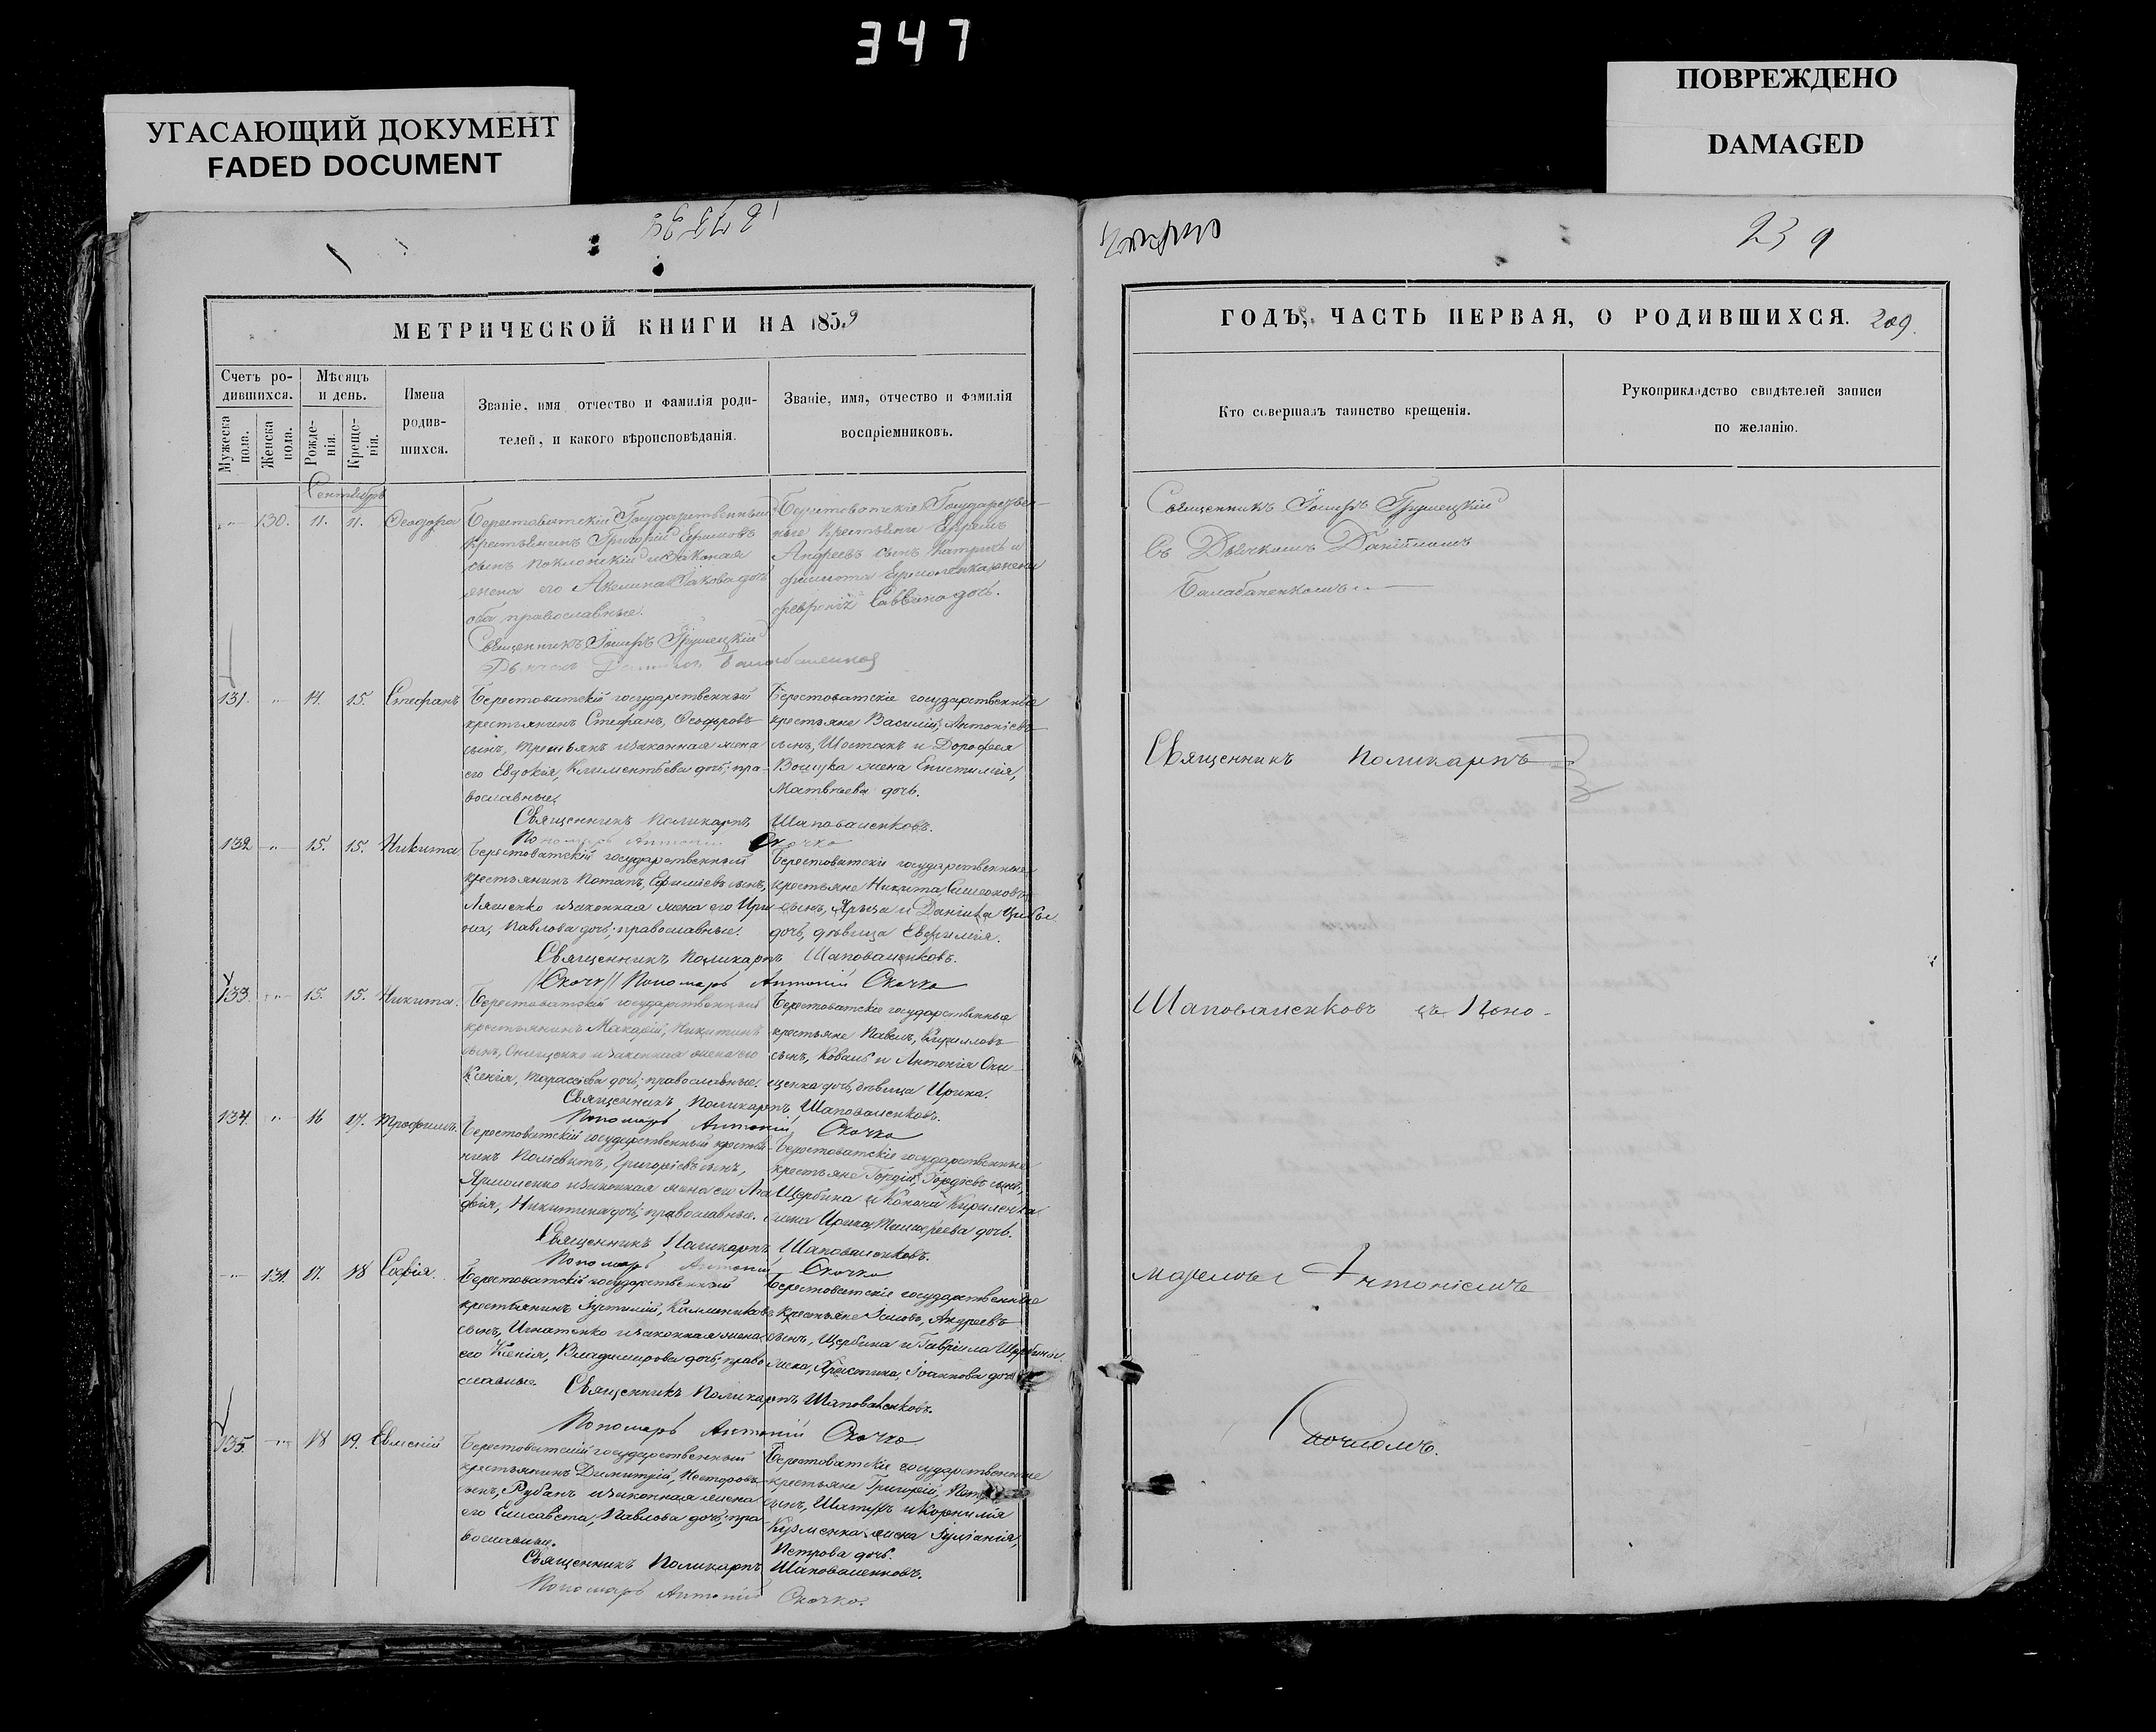 347
УГАСАЮЩИЙ ДОКУМЕНТ
FADED DOCUMENT
ПОВРЕЖДЕНО
DAMAGED
239
МЕТРИЧЕСКОЙ КНИГИ НА 1859
Счетъ ро-
дившихся.
Мужеска пола.
Женска пола.
Мѣсяцъ
и день.
Рожде-
нія.
Креще-
нія.
Имена
родив-
шихся.
Званіе, имя отчество и фамилія роди-
телей, и какого вѣроисповѣданія.
Званіе, имя, отчество и фамилія
воспріемниковъ.
Сентябрь
130. 11. 11. Ѳеодора
Берестоватскій Государственный
крестьянинъ Григорій Ефимовъ
сынъ и законная
жена его Акелина Іакова дочь
оба православные.
Берестоватскіе Государствен-
ные крестьяне Ефремъ
Андреевъ сынъ и
жена
Саввина дочь.
Священникъ Іосифъ Грушецкій
131. 14. 15. Стефанъ
Берестоватскій государственный
крестьянинъ Стефанъ, Ѳеодоровъ
сынъ, Третьякъ и законная жена
его Евдокія, Климентьева дочь; пра-
вославные.
Берестоватскіе государственные
крестьяне Василій, Антоніевъ
сынъ, Шостакъ и Дороѳея
жена Епистимія,
Матвѣева дочь.
Священникъ Поликарпъ Шаповаленковъ.
Пономарь Антоній Скочко
132 15. 15. Никита.
Берестоватскій государственный
крестьянинъ Потапъ, Ефиміевъ сынъ,
Ляшенко и законная жена его Ири-
на, Павлова дочь; православные.
Берестоватскіе государственные
крестьяне Никита, Симеоновъ
сынъ, и Даніила
дочь, дѣвица Евфимія.
Священникъ Поликарпъ Шаповаленковъ.
Пономарь Антоній Скочко
133. 15. 15. Никита.
Берестоватскій государственный
крестьянинъ Макарій, Никитинъ
сынъ, Онищенко и законная жена его
Ксенія, Тарасіева дочь; православные.
Берестоватскіе государственные
крестьяне Павелъ, Кирилловъ
сынъ, Коваль и Антонія Они-
щенка дочь, дѣвица Ирина.
Священникъ Поликарпъ Шаповаленковъ.
Пономарь Антоній Скочко
134. 16 17. Трофимъ.
Берестоватскій государственный крестья-
нинъ Григоріевъ сынъ,
Ярмоленко и законная жена его Ага-
фія, Никитина дочь; православные.
Берестоватскіе государственные
крестьяне Гордій, Гордіевъ сынъ,
Щербина и Кириленка
жена Ирина, дочь.
Священникъ Поликарпъ Шаповаленковъ.
Пономарь Антоній Скочко
131. 17. 18 Софія.
Берестоватскій государственный
крестьянинъ Іустиній,
сынъ, Игнатенко и законная жена
его Ксенія, Владимирова дочь; право-
славные.
Берестоватскіе государственные
крестьяне Андреевъ
сынъ, Щербина и Гавріила Щербины
жена, Христина, Іоаннова дочь
Священникъ Поликарпъ Шаповаленковъ.
Пономарь Антоній Скочко
135. 18 19. Евменій
Берестоватскій государственный
крестьянинъ Димитрій, Несторовъ
сынъ, Рубанъ и законная жена
его Елисавета, Павлова дочь; пра-
вославные.
Берестоватскіе государственные
крестьяне Григорій,
сынъ, и Корнилія
Кузменка жена Іуліанія,
Петрова дочь.
Священникъ Поликарпъ Шаповаленковъ.
Пономарь Антоній Скочко.
ГОДЪ, ЧАСТЬ ПЕРВАЯ, О РОДИВШИХСЯ. 209.
Кто совершалъ таинство крещенія.
Рукоприкладство свидѣтелей записи
по желанію.
Священникъ Іосифъ Грушецкій
съ Дьячкомъ Даніиломъ
Балабаненкомъ
Священникъ Поликарпъ
Шаповаленковъ съ Поно-
маремъ Антоніемъ
Скочкомъ.